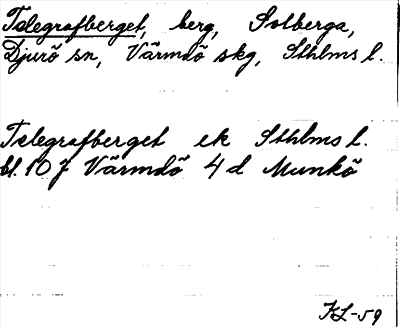 Telegrafberget, berg, Solberga,
Djurö sn, Värmdö skg, Sthlms l.
Telegrafberget ek Sthlms l.
bl. 107 Värmdö 4d Munkö
KL-59